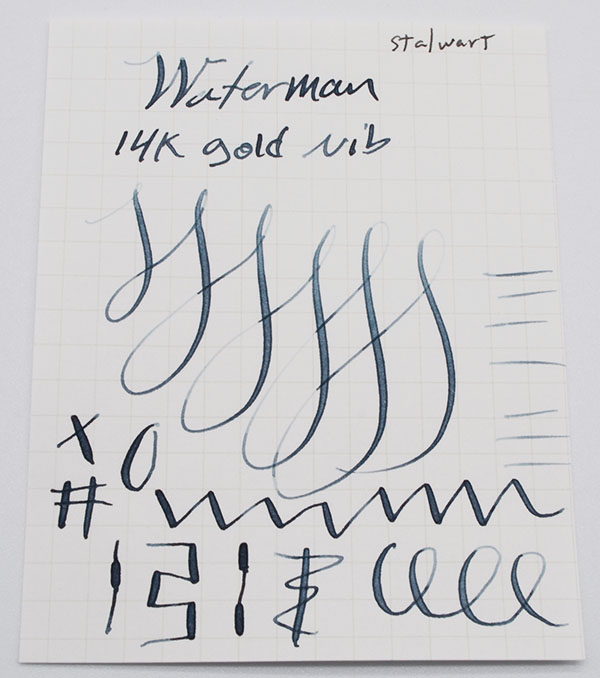 stalwart
Waterman
14K gold nib
X O
#